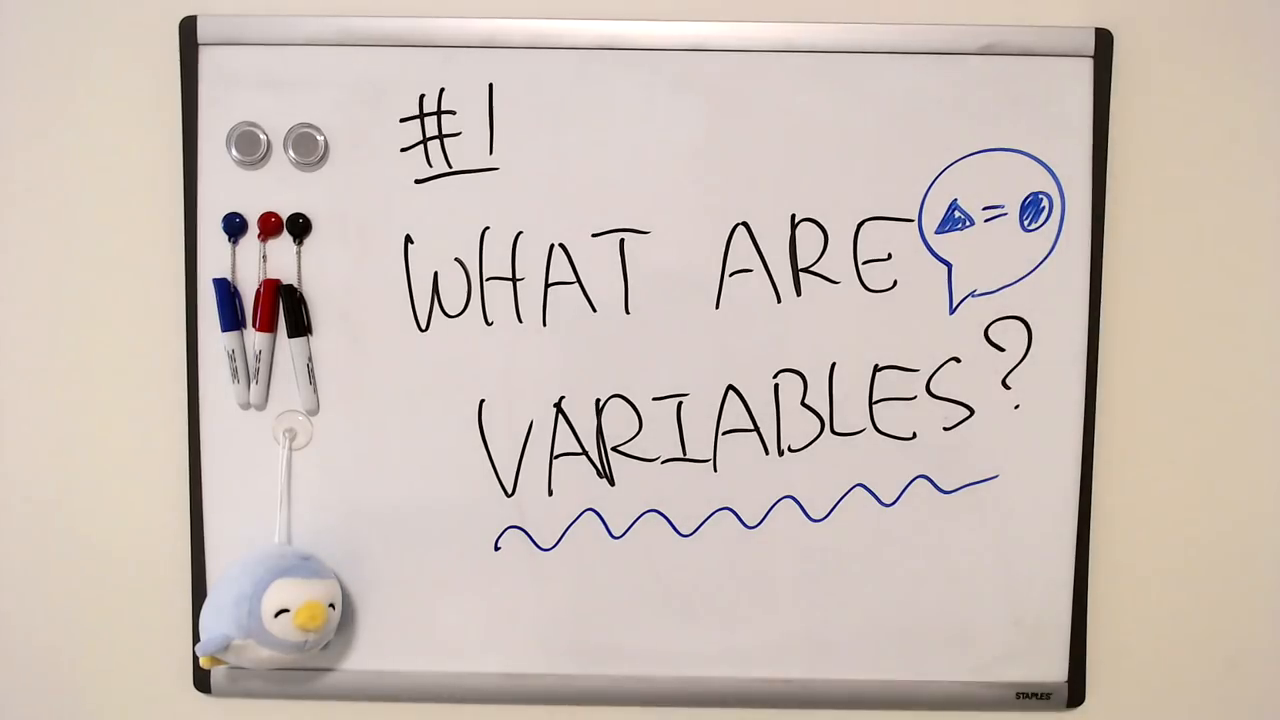 #1
WHAT ARE
▲ = ●
VARIABLES?
STAPLES